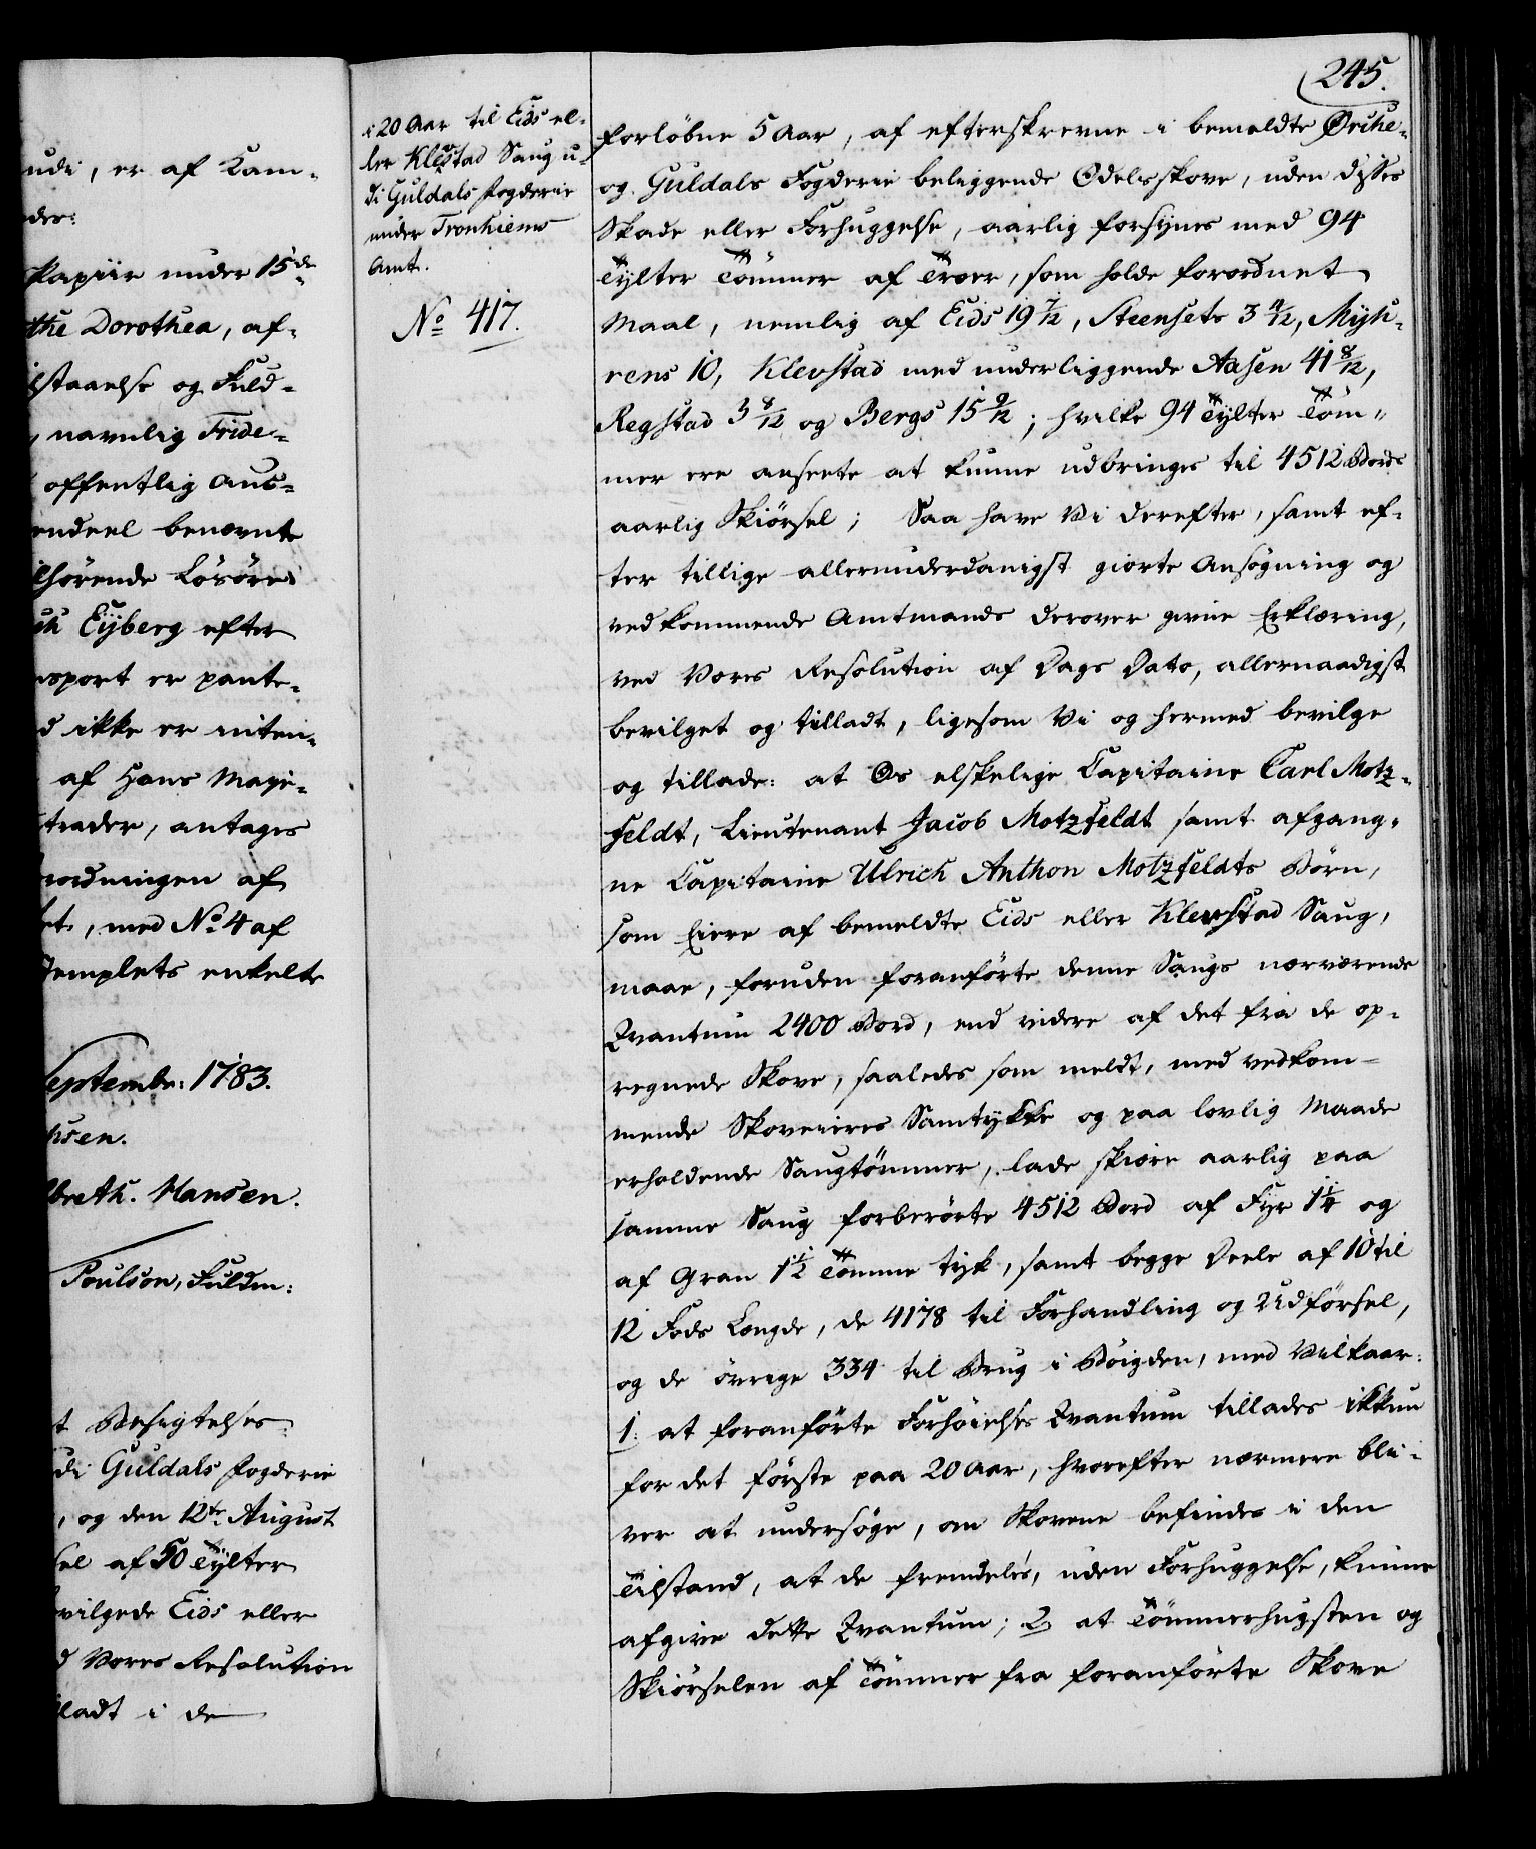 udi, er af Kam-
der:
Papiir under 15de
the Dorothea, af-
staaelse og Fuld-
navnlig Fride-
offentlig Auc-
endeel benævnte
lhørende Løsøre
Eÿberg efter
nsport er pante-
d ikke er inten-
af Hans Maje-
trader, antages
ordningen af
et, med No. 4 af
Stemplets enkelte
Septembr: 1783.
nsen.
lbreth. Hansen.
Poulson, Fuldm:
t Besigtelses-
di Guldals Fogderie
, og den 12te August
sel af 50 Tylter
vilgede Eids eller
d Vores Resolution
ladt i de
i 20 Aar til Eids el-
ler Klevstad Saug u-
di Guldals Fogderie
under Tronhiems
Amt.
No 417.
245.
forløbne 5 Aar, af efterskrevne i bemeldte Ørche-
og Guldals Fogderie beliggende Odelsskove, uden disses
Skade eller Forhuggelse, aarlig forsynes med 94
Tylter Tømmer af Træer, som holde forordnet
Maal, nemlig af Eids 19 7/12, Steensets 3 4/12, Myh-
rens 10, Klevstad med underliggende Aasen 41 8/12,
Regstad 3 8/12 og Bergs 15 9/12; hvilke 94 Tylter Töm-
mer ere ansete at kunne udbringes til 4512 Bords
aarlig Skiørsel; Saa have Vi derefter, samt ef-
ter tillige allerunderdanigst giorte Ansøgning og
vedkommende Amtmands derover givne Erklæring,
ved Vores Resolution af Dags Dato, allernaadigst
bevilget og tilladt, ligesom Vi og hermed bevilge
og tillade: at Os elskelige Capitaine Carl Motz-
feldt, Lieutenant Jacob Motzfeldt samt afgang-
ne Capitaine Ulrich Anthon Motzfeldts Börn,
som Eiere af bemeldte Eids eller Klevstad Saug,
maae, foruden foranförte denne Saugs nærværende
Qvantum 2400 Bord, end videre af det fra de op-
regnede Skove, saaledes som meldt, med vedkom-
mende Skoveieres Samtykke og paa lovlig Maade
erholdende Saugtømmer, lade skiære aarlig paa
samme Saug forberørte 4512 Bord af Fyr 1 1/4 og
af Gran 1 1/2 Tomme tyk, samt begge Deele af 10 til
12 Fods Længde, de 4178 til Forhandling og Udførsel,
og de øvrige 334 til Brug i Bøigden, med Vilkaar:
1: at foranførte Forhøielses Qvantum tillades ikkun
for det første paa 20 Aar, hvorefter nærmere bli-
ver at undersøge, om Skovene befindes i den
Tilstand, at de fremdeles, uden Forhuggelse, kunne
afgive dette Qvantum; 2, at Tømmerhugsten og
Skiørselen af Tømmer fra foranförte Skove